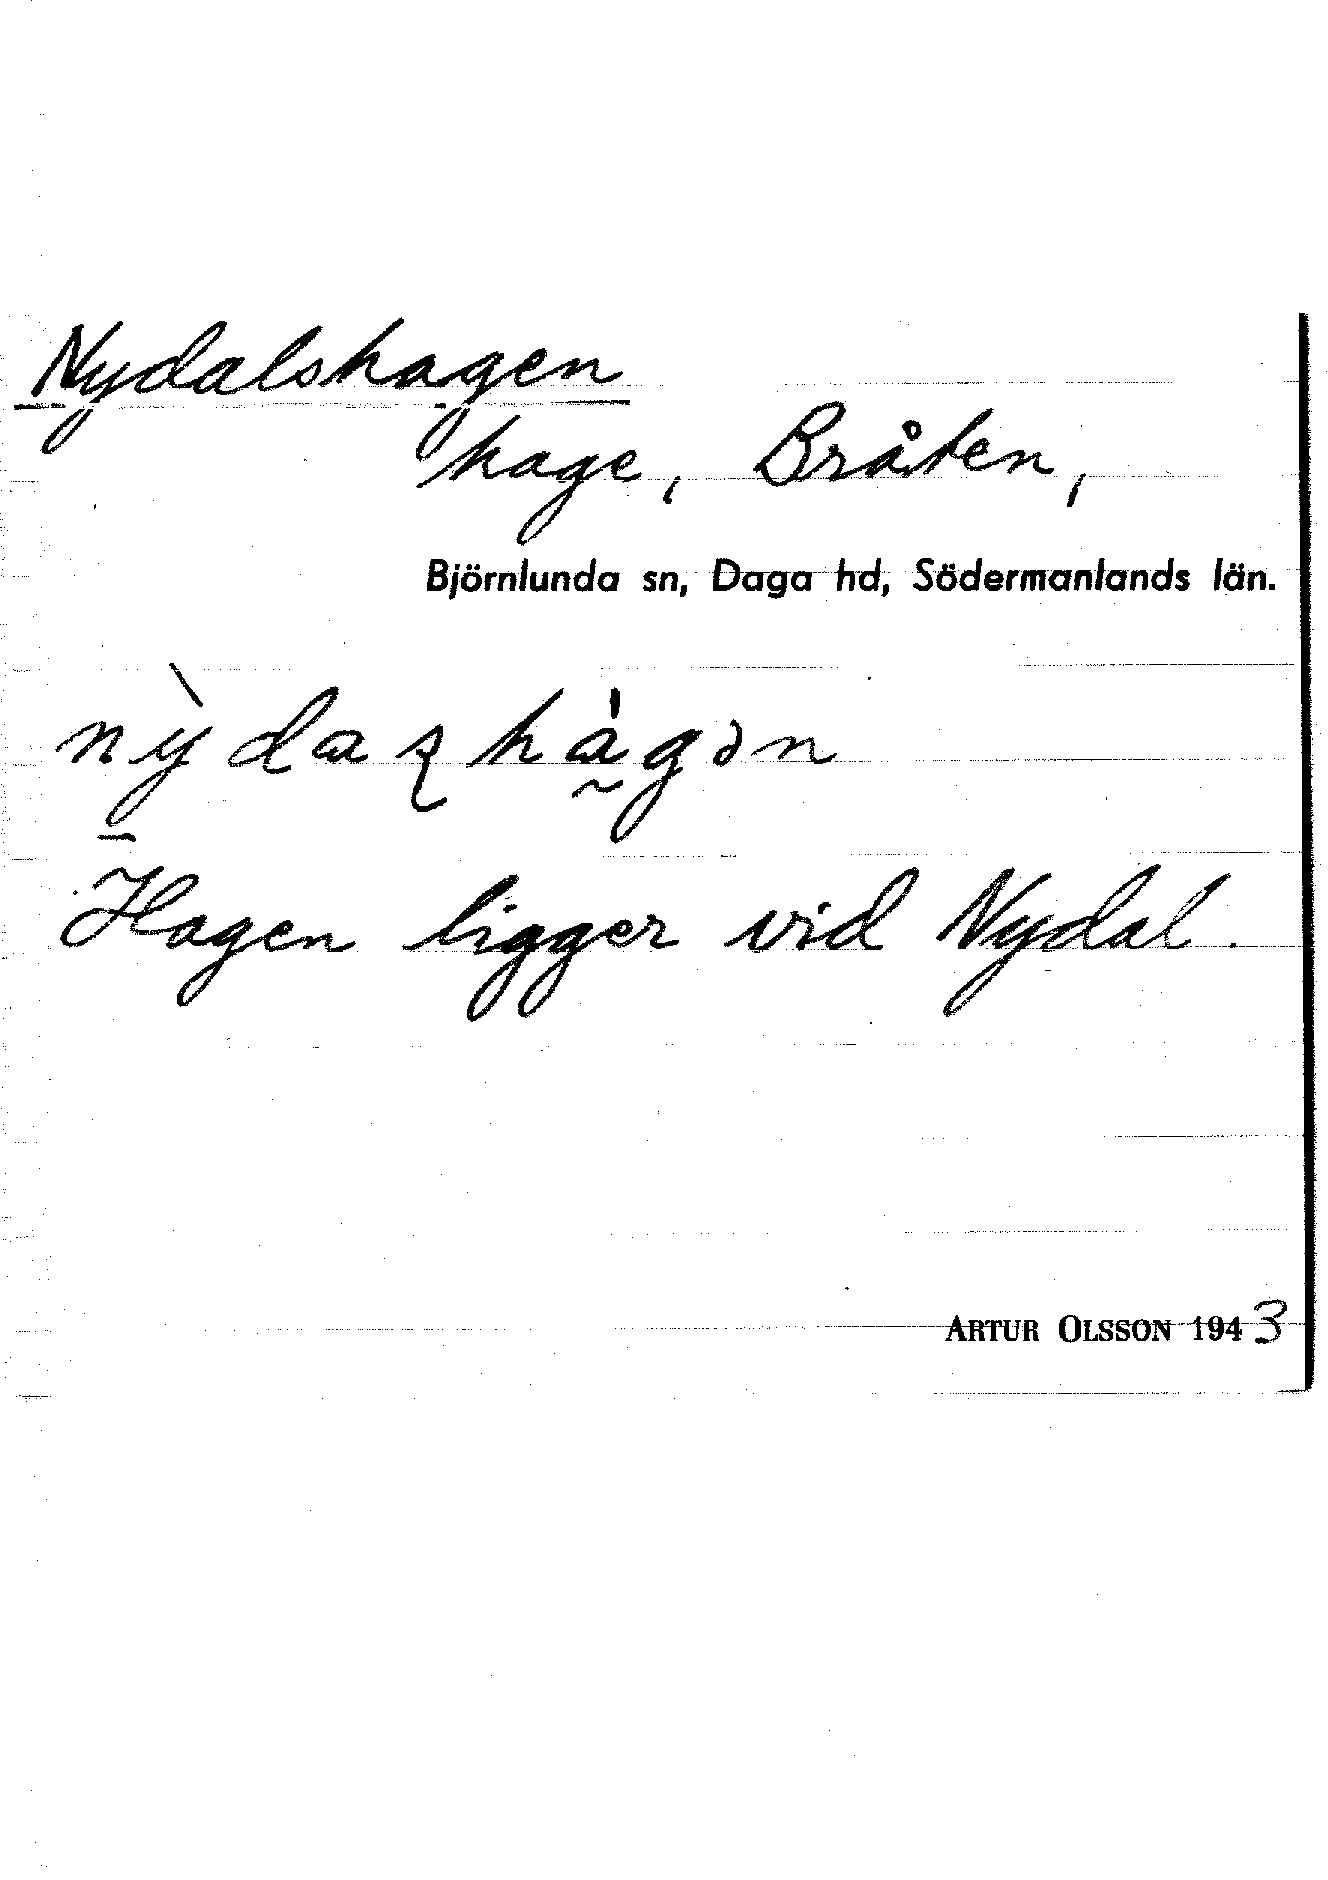 Nydalshagen
hage, Bråten,
Björnlunda sn, Daga hd, Södermanlands län.
nỳ̠daʂhà̰gən
Hagen ligger vid Nydal.
ARTUR OLSSON 1943